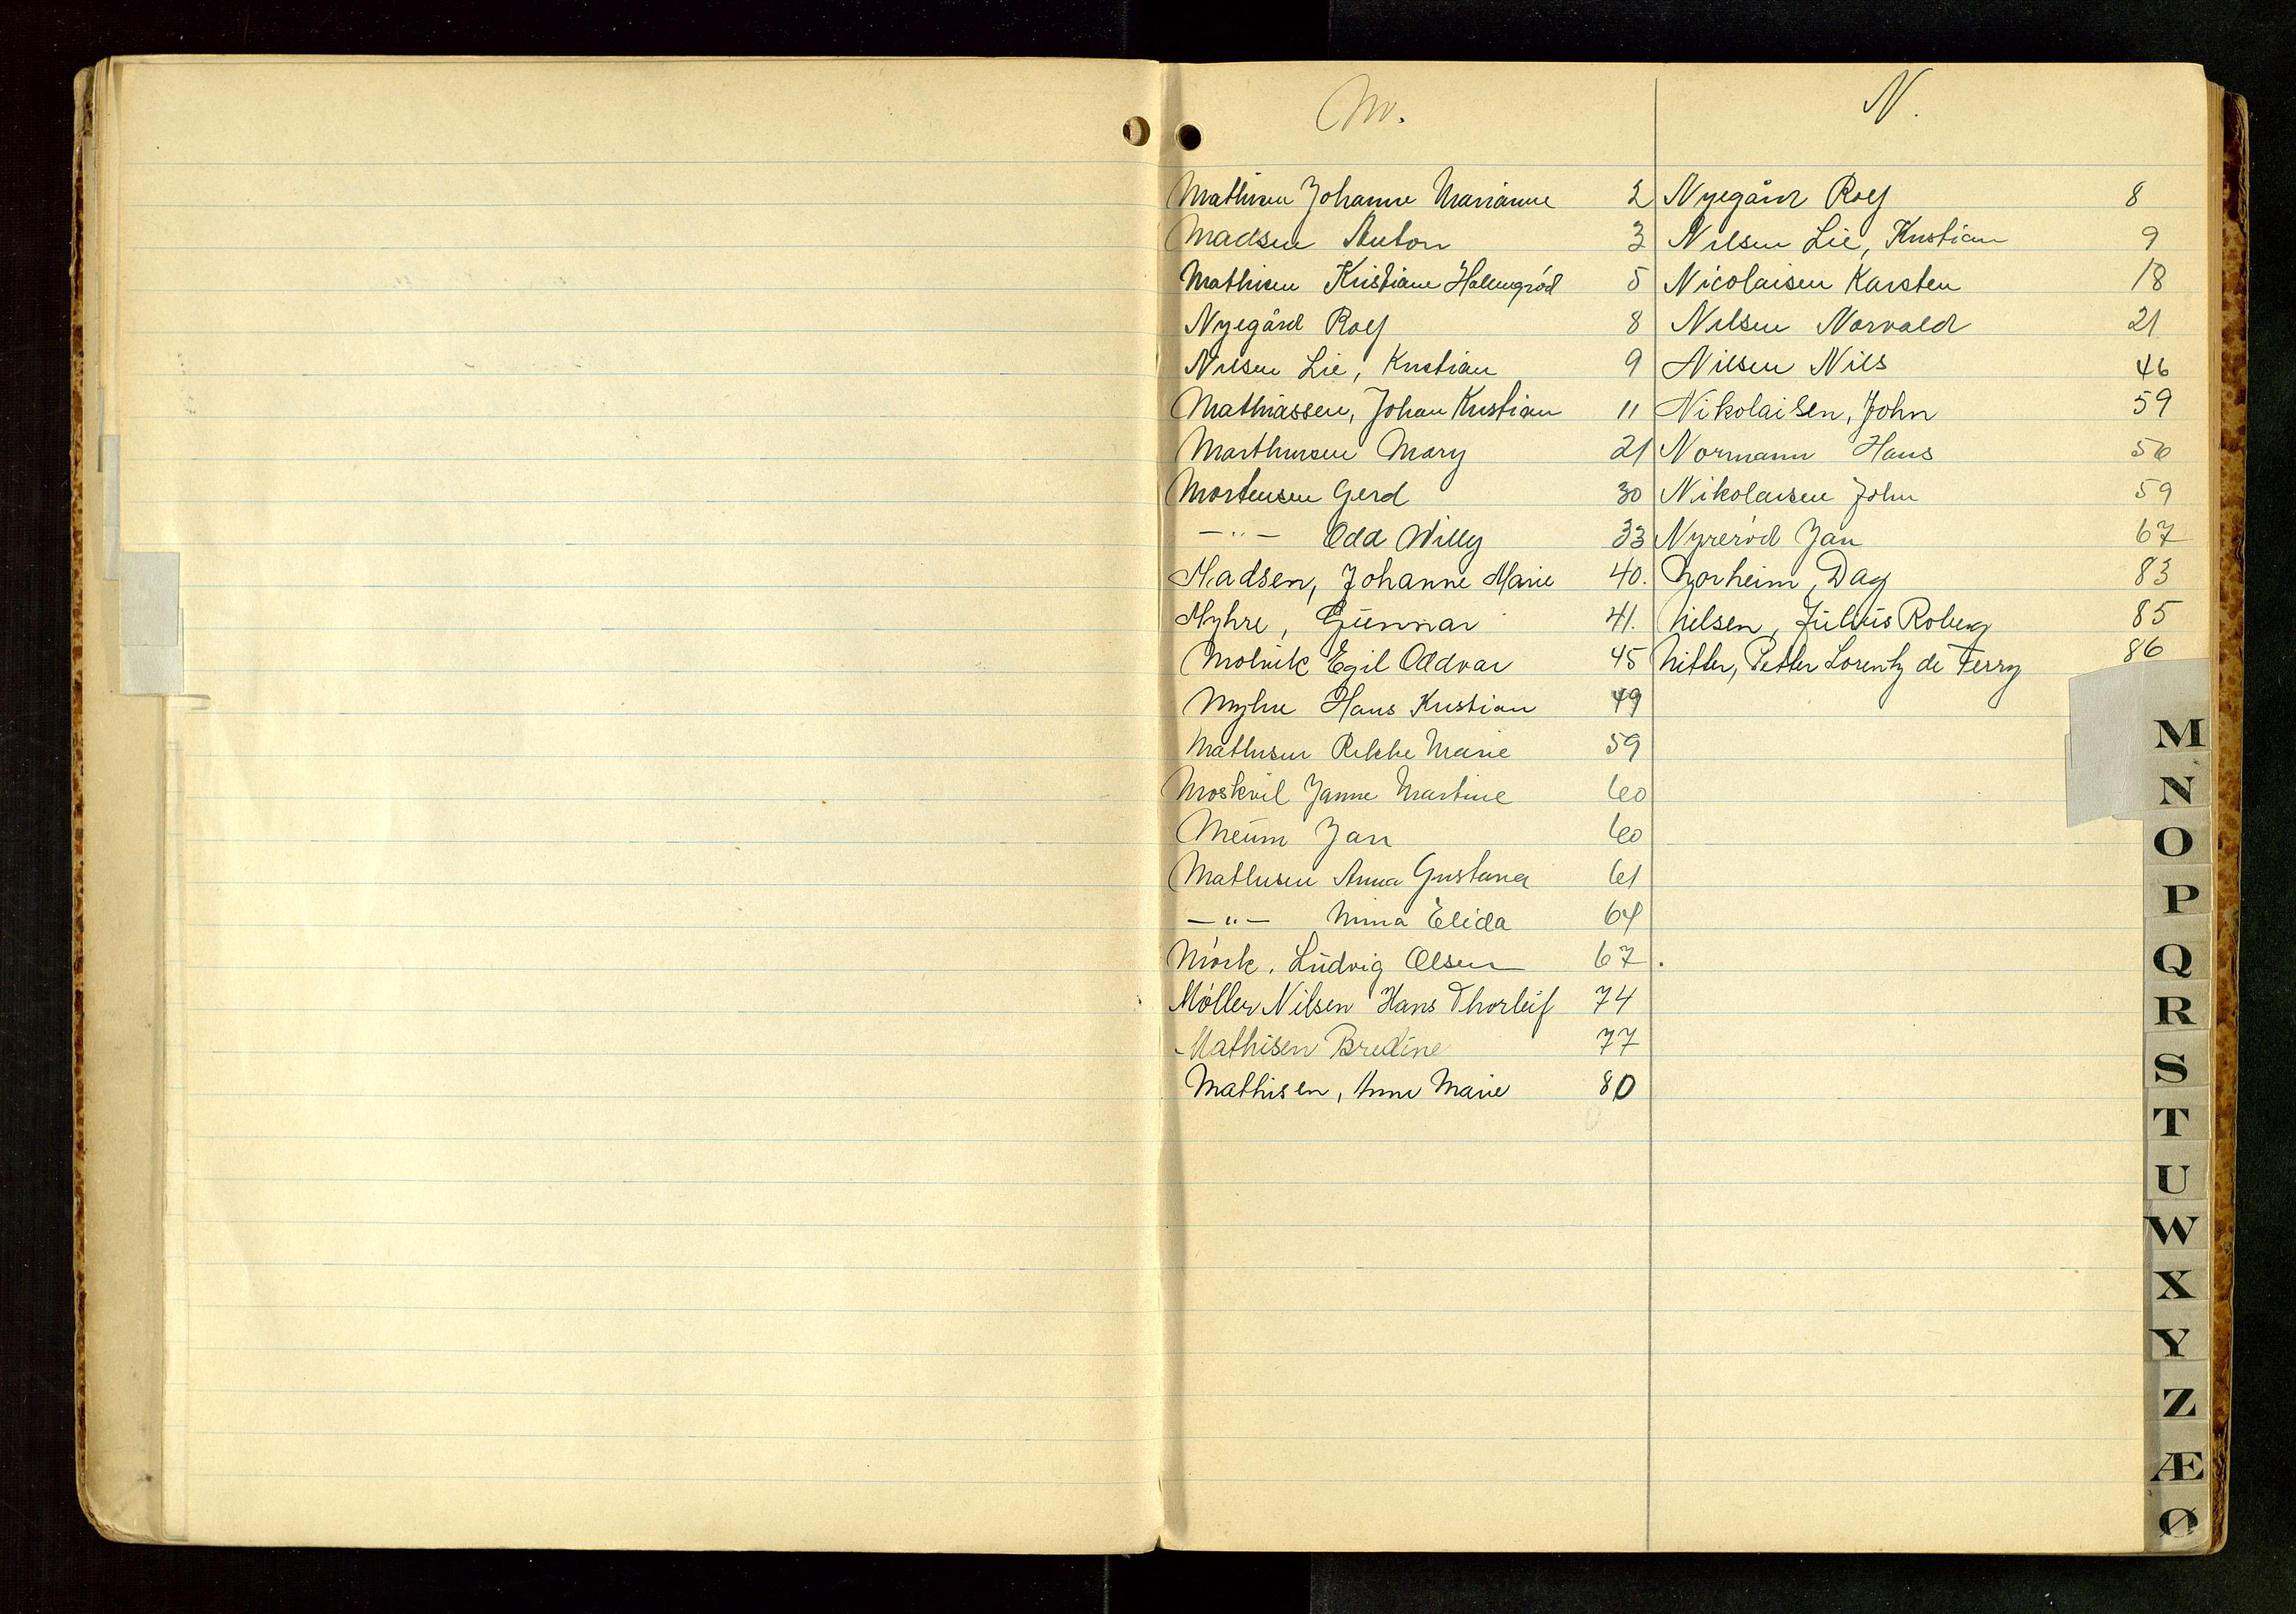 M.
Mathisen Johanne Marianne 2
Madsen Anton 3
Mathisen Kristiane Holemgród 5
Nyegård Rolf 8
Nilsen Lie, Kristian 9
Mathiassen, Johan Kristian 11
Marthinsen Mary 21
Mortensen Gerd 30
—"— Odd Willy 33
Madsen, Johanne Marie 40.
Myhre, Gunnar 41.
Molvik Egil Oddvar 45
Myhre Hans Kristian 49
Mathisen Rikke Marie 59
Moskvil Janne Martine 60
Meum Jan 60
Mathisen Anna Gustava 61
—"— Mina Elida 64
Mörk, Ludvig Olsen 67.
Möller Nilsen Hans Thorleif 74
Mathisen Bredine 77
Mathisen, Anne Marie 80
N.
Nyegård Rolf 8
Nilsen Lie, Kristian 9
Nicolaisen Karsten 18
Nilsen Norvald 21
Nilsen Nils 46
Nikolaisen, John 59
Normann Hans 56
Nikolaisen John 59
Nyreröd Jan 67
Norheim, Dag 83
Nilsen, Julius Roberg 85
Nitter, Petter Lorentz de Ferry 86
M
N
O
P
Q
R
S
T
U
W
X
Y
Z
Æ
Ø